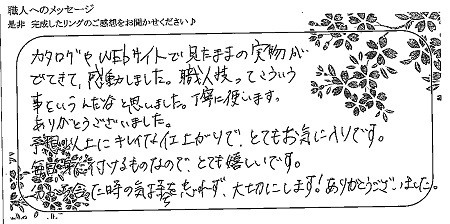 職人へのメッセージ
是非 完成したリングのご感想をお聞かせください♪
カタログやWEBサイトで見たままの実物が
でてきて、感動しました。職人技ってこういう
事をいうんだなと思いました。丁寧に使います。
ありがとうございました。
予想以上にキレイな仕上がりで、とてもお気に入りです。
毎日 付けるものなので、とても嬉しいです。
た時の気持を忘れず、大切にします!ありがとうございました。